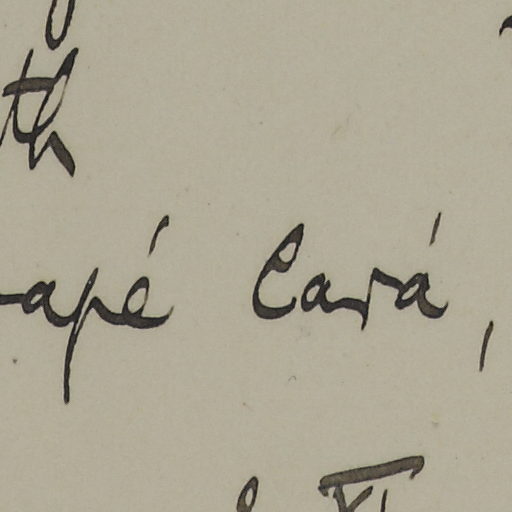 th
apé Cará,